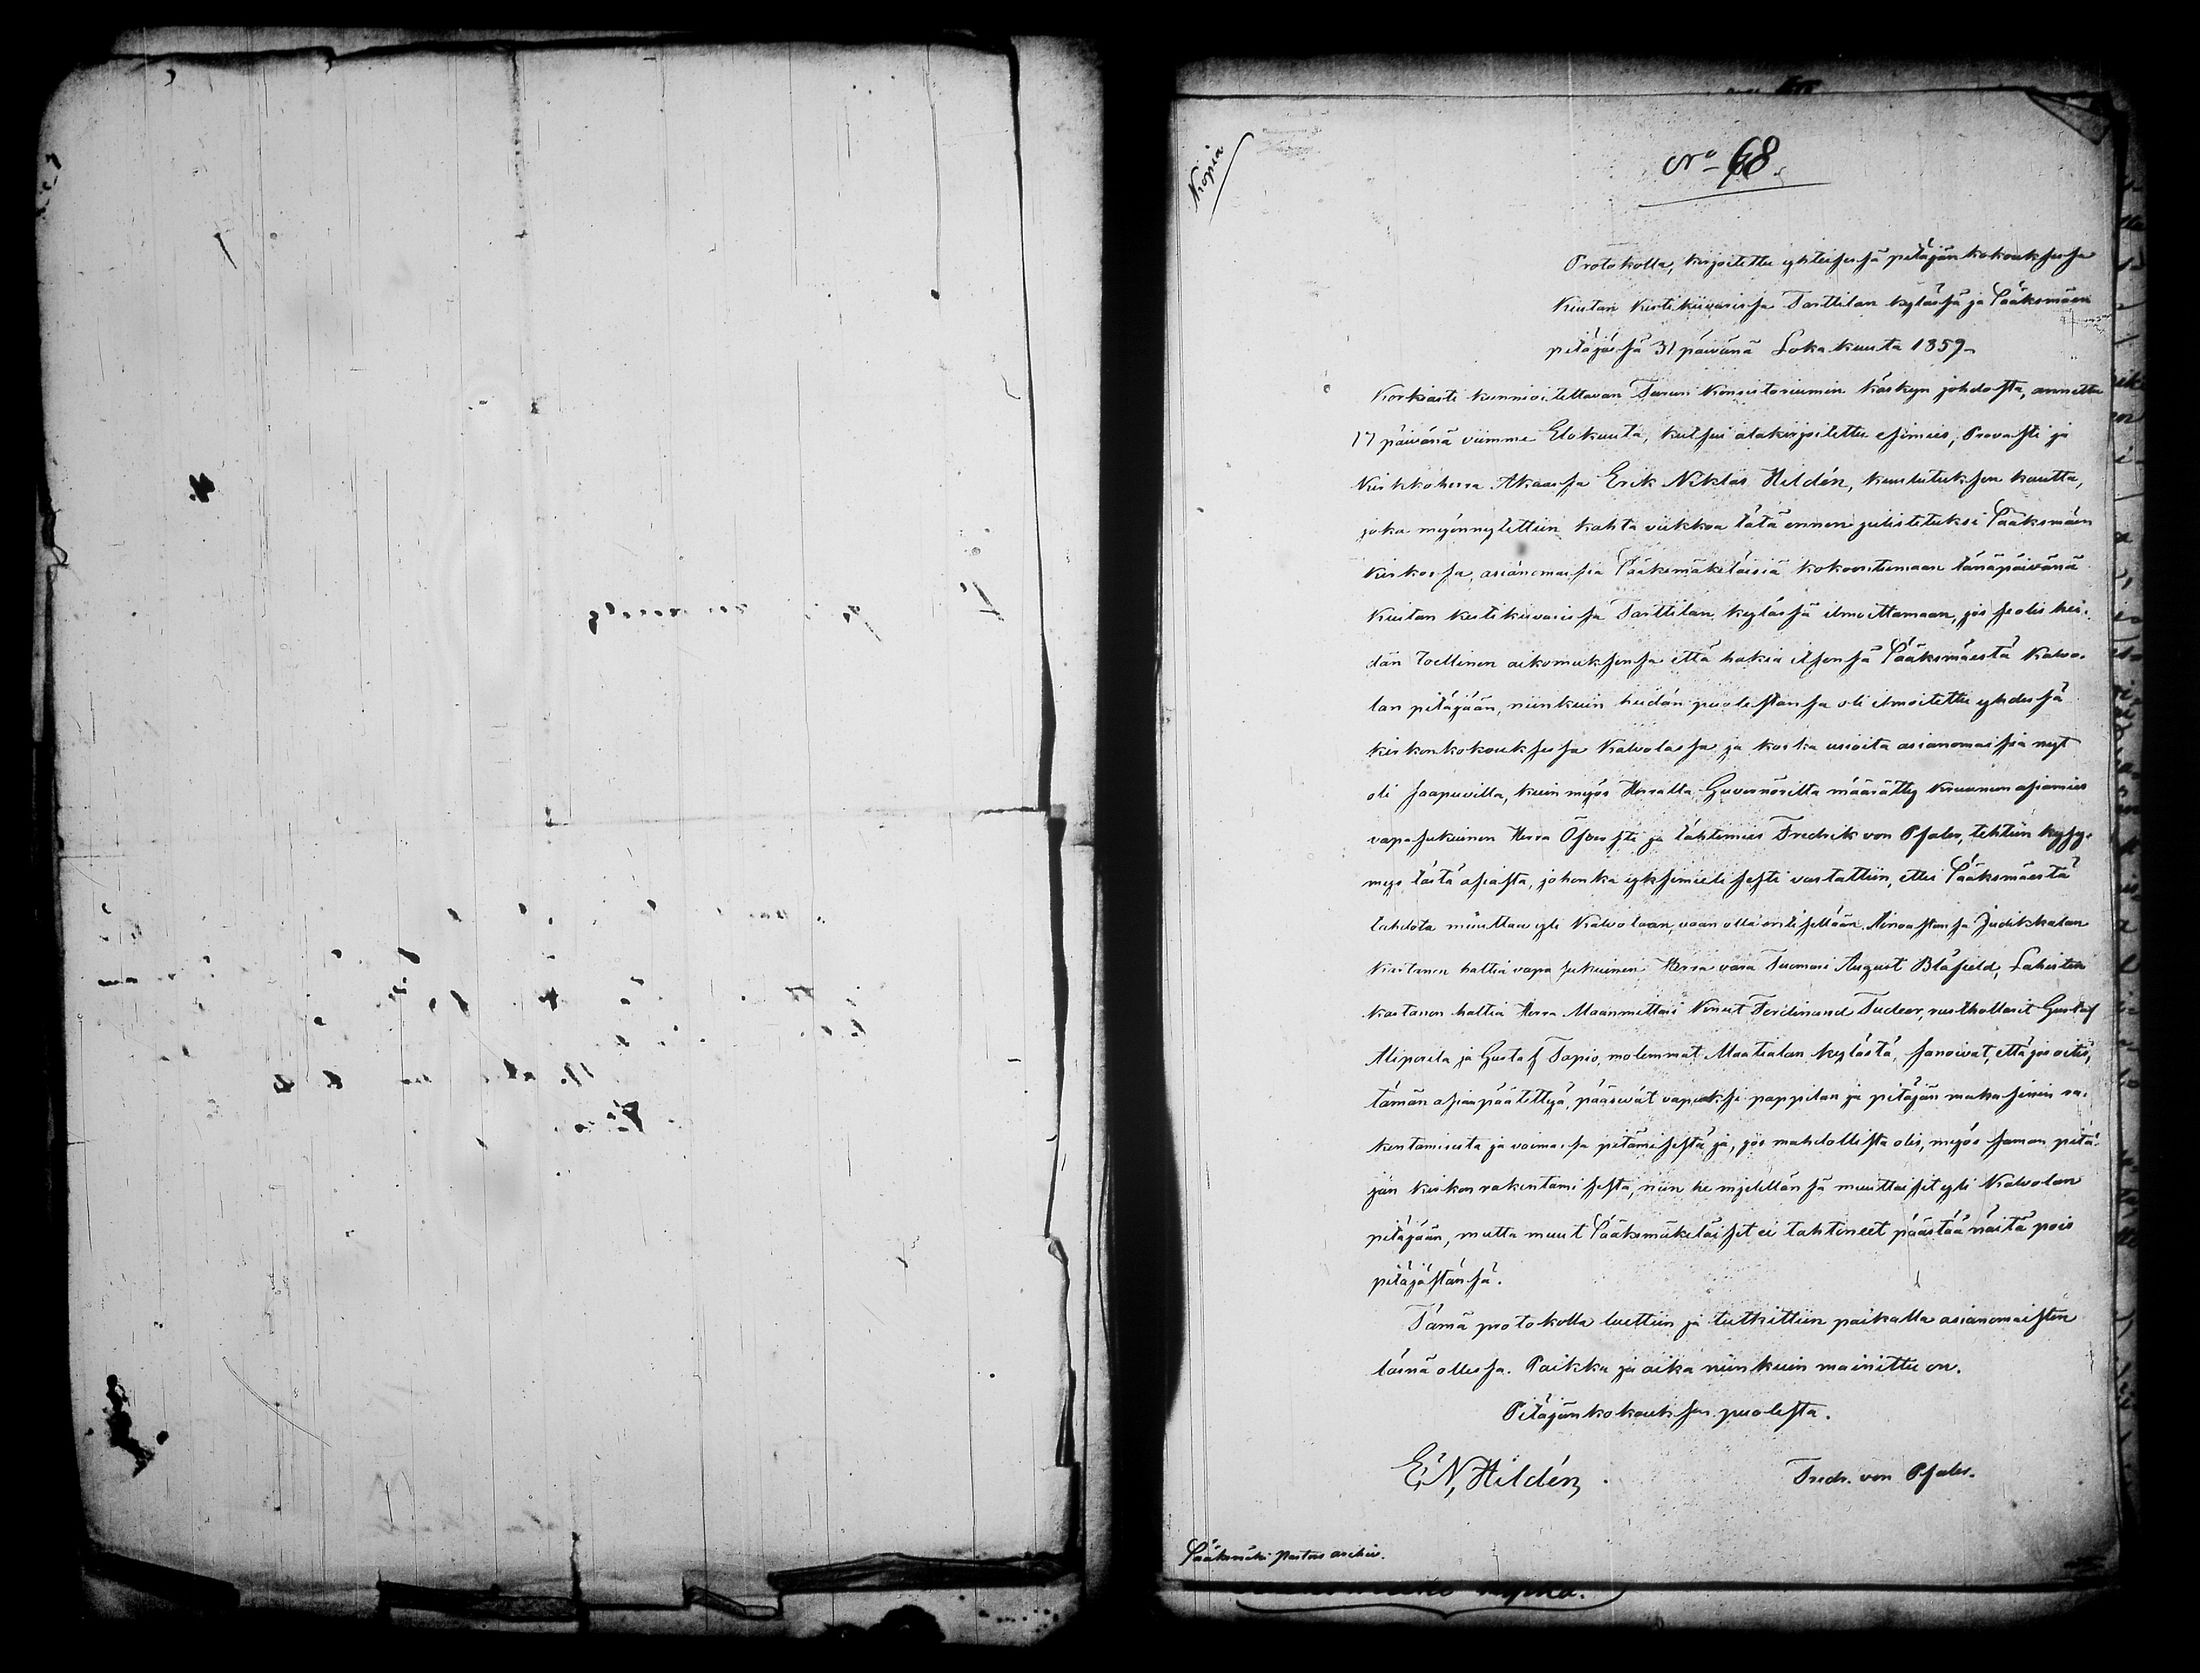 Kopia
No 68.
Protokolla, kirjoitettu yhteisessä pitäjänkokouksessa
Kuulan Kestikiivarissa Tarttilan kylässä ja Sääksmäen
pitäjässä 31 päivänä Lokakuuta 1859.
Korkiasti kunnioitettavan Turun Konsistoriumin käskyn johdosta, annettu
17 päivänä viimme Elokuuta, kutsui alakirjoitettu esimies, Provasti ja
Kirkkoherra Akaassa Erik Niklas Hildén, kuulutuksen kautta,
joka myönnytettiin kahta viikkoa tätä ennen julistetuksi Sääksmäen
kirkossa, asianomaisia Sääksmäkeläisiä kokoontumaan tänäpäivänä
Kuulan kestikiivarissa Tarttilan kylässä ilmoittamaan, jos se olis hei-
dän toellinen aikomuksensa että hakia itsensä Sääksmäestä Kalvo-
lan pitäjään, niinkuin heidän puolestansa oli ilmoitettu yhdessä
kirkonkokouksessa Kalvolassa ja koska usioita asianomaisia nyt
oli saapuvilla, kuin myös Herralta Guvernörilta määrätty kruunun asiamies
vapasukuinen Herra Öfversti ja lähtemies Fredrik von Pfaler, tehtiin kysy-
mys tästä asiasta, johonka yksimielisesti vastattiin, ettei Sääksmäestä
tahdota muuttaa yli Kalvolaan, vaan olla entisellään. Ainoastansa Judikkalan
Kartanon haltia vapasukuinen Herra vara Tuomari August Blåfield, Lahisten
Kartanon haltia Herra Maanmittari Knut Ferdinand Tudeer, rusthollarit Gustaf
Aliporila ja Gustaf Tapio, molemmat Maatialan kylästä, sanoivat, että jos oitis,
tämän asian päätettyä, pääsevät vapaaksi pappilan ja pitäjän makasiinin ra-
kentamisesta ja voimassa pitämisestä ja, jos mahdollista olis, myös saman pitä-
jän kirkon rakentamisesta, niin he mielellänsä muuttaisit yli Kalvolan
pitäjään, mutta muut Sääksmäkeläiset ei tahtoneet päästää näitä pois
pitäjästänsä.
Tämä protokolla luettiin ja tutkittiin paikalla asianomaisten
läsnä ollessa. Paikka ja aika niinkuin mainittu on.
Pitäjänkokouksen puolesta.
E. N. Hildén
Fredr. von Pfaler.
Sääksmäki Pastors archiv.